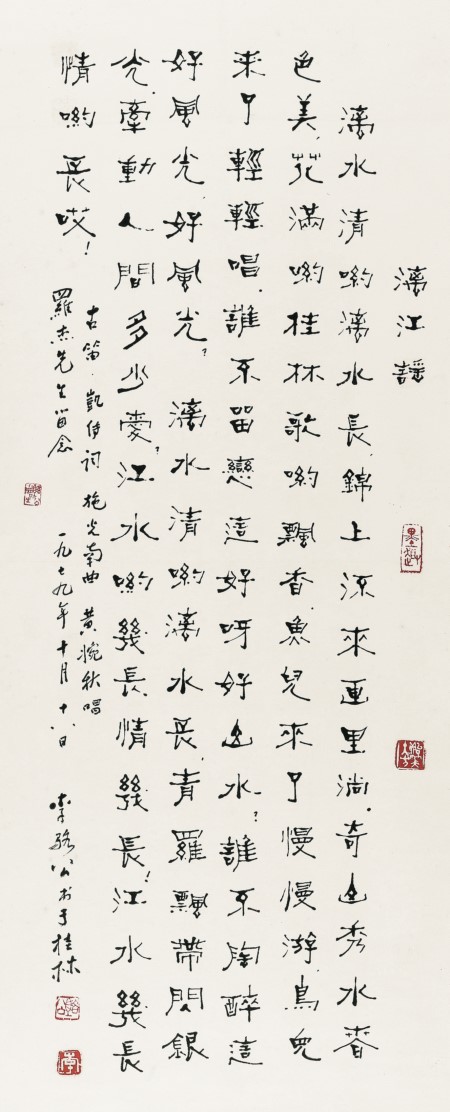 漓江謡
漓水清喲漓水長,錦上流來画里淌。奇山秀水春
色美,花滿喲桂林歌喲飄香,魚兒來了慢慢游,鳥兒
來了輕輕唱。誰不留戀這好呀好山水?誰不陶醉這
好風光好風光?漓水清喲漓水長,青羅飄帶閃銀
光,牽動人間多少愛?江水喲幾長,情幾長!江水幾長
情喲長哎!
古笛、凱傳詞 施光南曲 黄婉秋唱
羅杰先生留念 一九七九年十月十八日 李駱公書于桂林